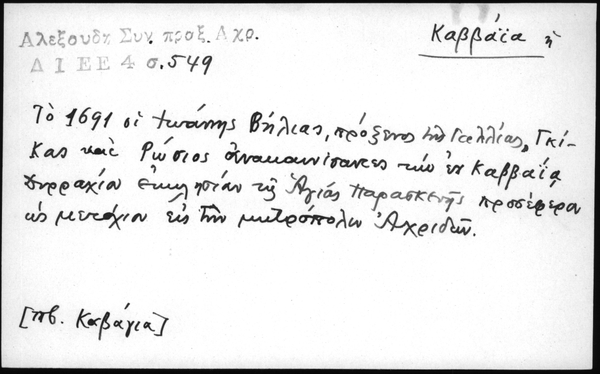 Καββάϊα ἡ
Αλεξούδη Συν. πραξ. Αχρ.
ΔΙΕΕ 4 σ.549
Τὸ 1691 οἱ Ἰωάννης Βήλιας, πρόξενος τῆς Γαλλίας, Γκί-
κας καὶ Ρώσιος ἀνακαινίσαντες τὴν ἐν Καββαΐᾳ
Δυρραχίου ἐκκλησίαν τῆς Ἁγίας Παρασκευῆς προσέφερον
ὡς μετόχιον εἰς τὴν μητρόπολιν Ἀχριδῶν.
[πβ. Καβάγια]